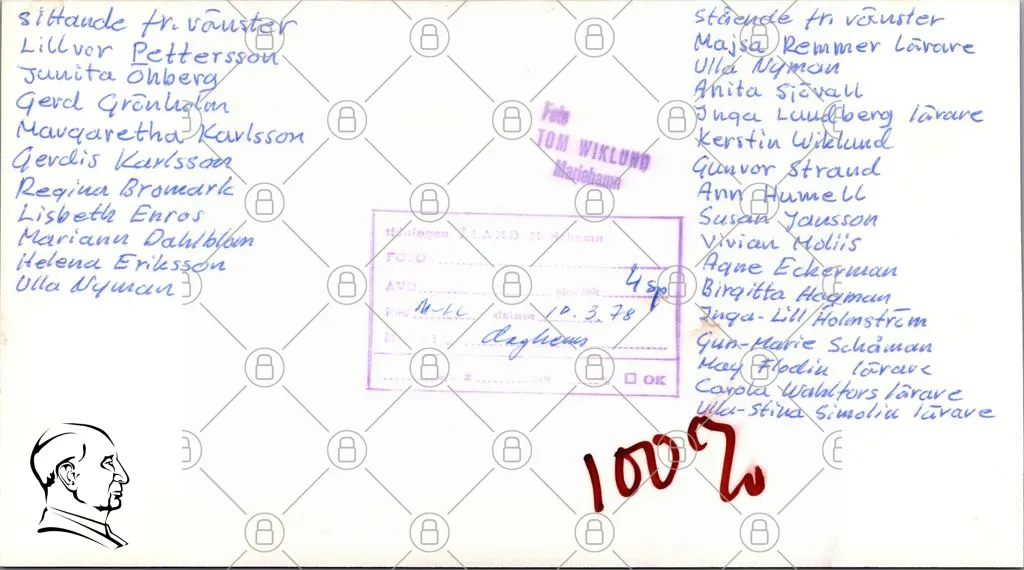 Sittande fr. vänster
Lillvor Pettersson
Junita Öhberg
Gerd Grönholm
Margaretha Karlsson
Gerdis Karlsson
Regina Bromark
Lisbeth Enros
Mariann Dahlblom
Helena Eriksson
Ulla Nyman
Foto
TOM WIKLUND
Mariehamn
tidningen ÅLAND Mariehamn
FOTO:
AVD. 4 sp
datum 10.3.78
x
OK
100%
Stående fr. vänster
Majsa Remmer lärare
Ulla Nyman
Anita Sjövall
Inga Lundberg lärare
Kerstin Wiklund
Gunvor Strand
Ann Humell
Susan Jansson
Vivian Moliis
Agne Eckerman
Birgitta Hagman
Inga-Lill Holmström
Gun-Marie Schåman
May Flodin lärare
Carola Wahlfors lärare
Ulla-Stina Simolin lärare